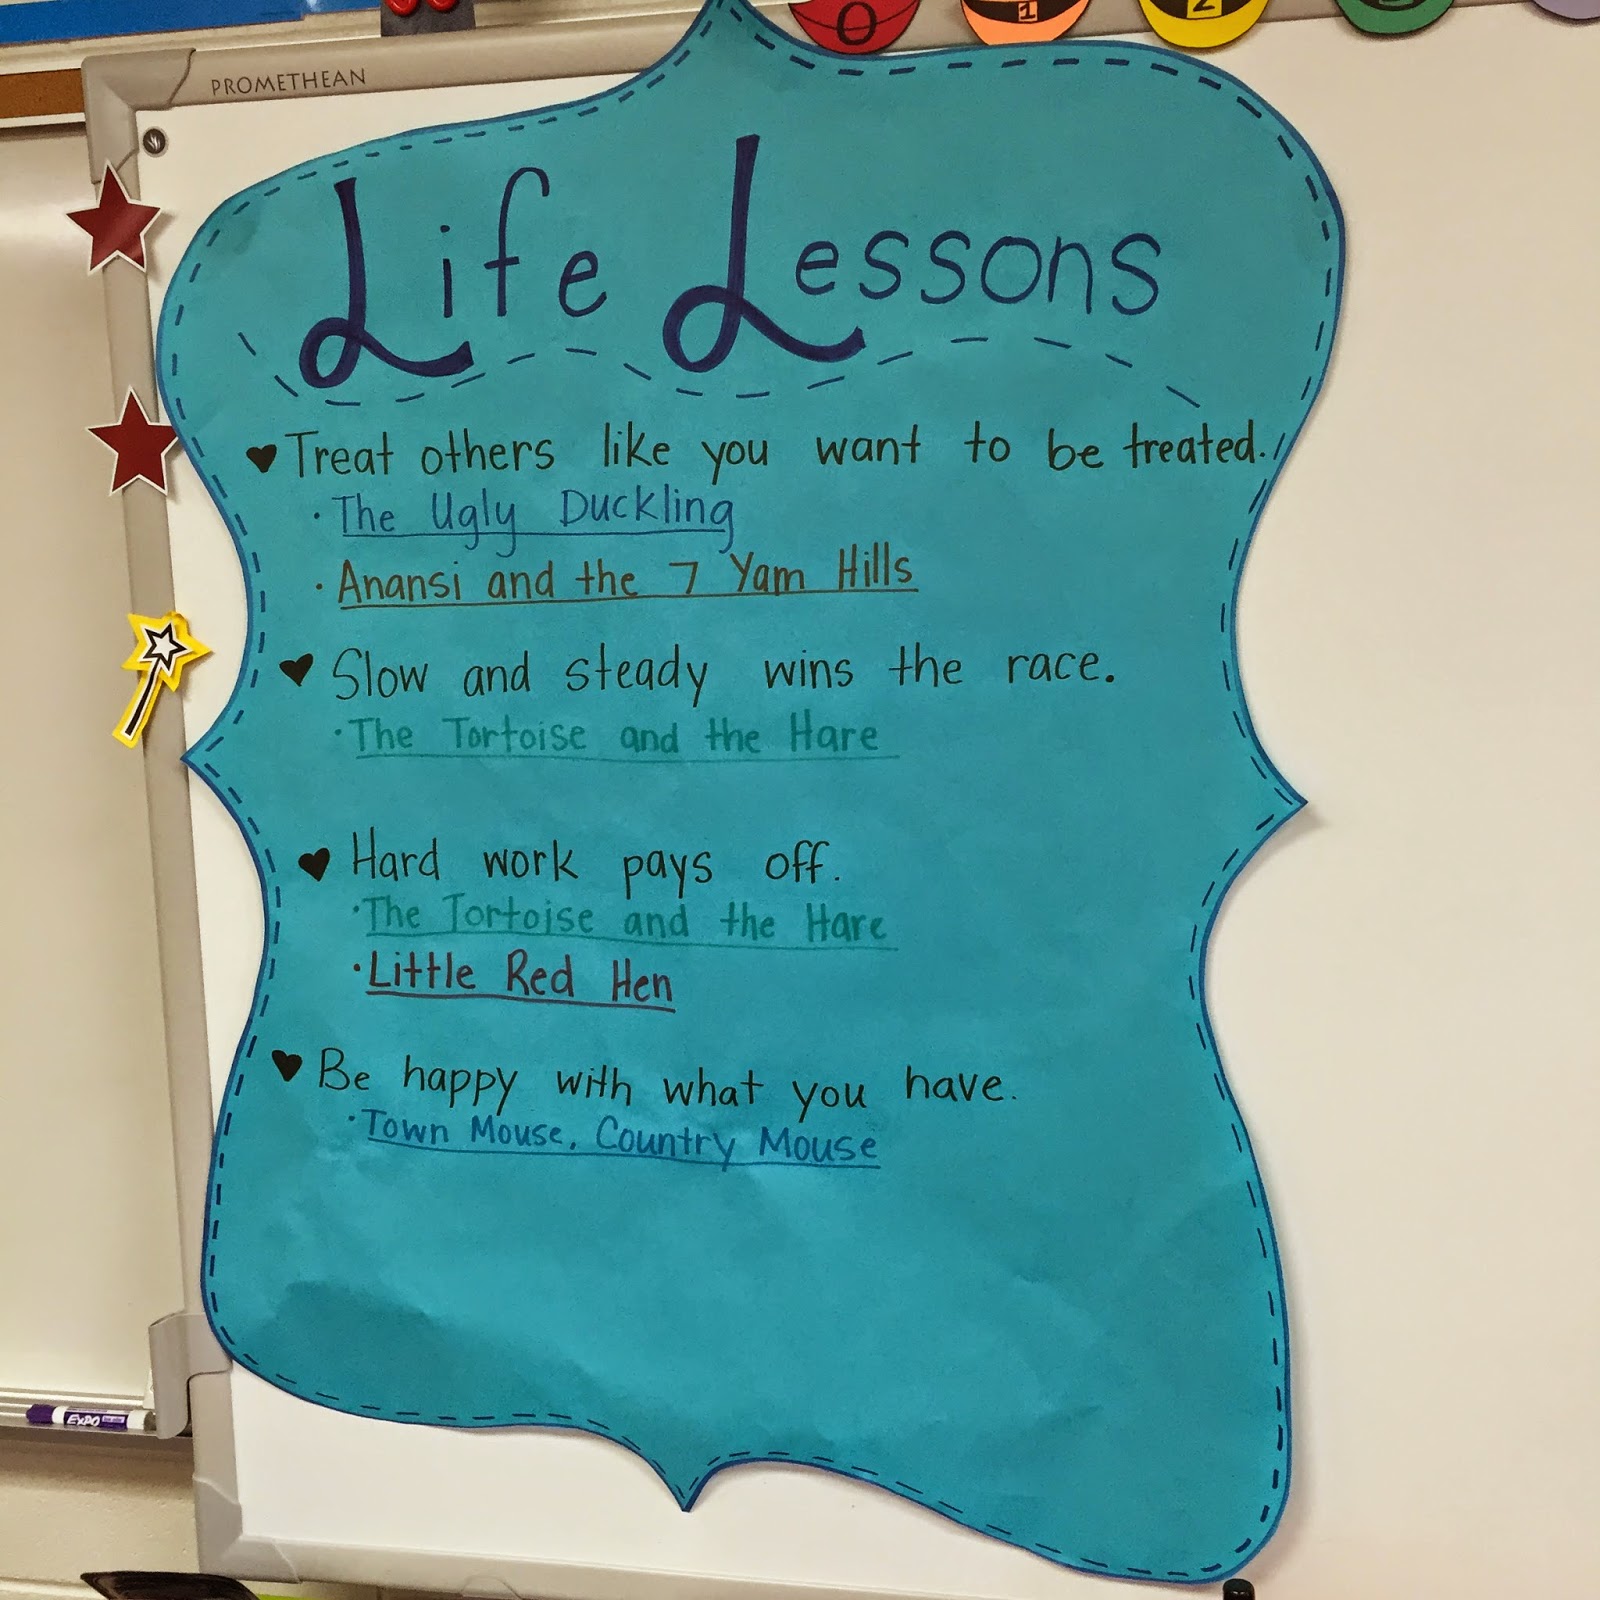 0
1
2
PROMETHEAN
Life Lessons
♥ Treat others like you want to be treated.
· The Ugly Duckling
· Anansi and the 7 Yam Hills
♥ Slow and steady wins the race.
· The Tortoise and the Hare
♥ Hard work pays off.
· The Tortoise and the Hare
· Little Red Hen
♥ Be happy with what you have.
· Town Mouse, Country Mouse
EXPO